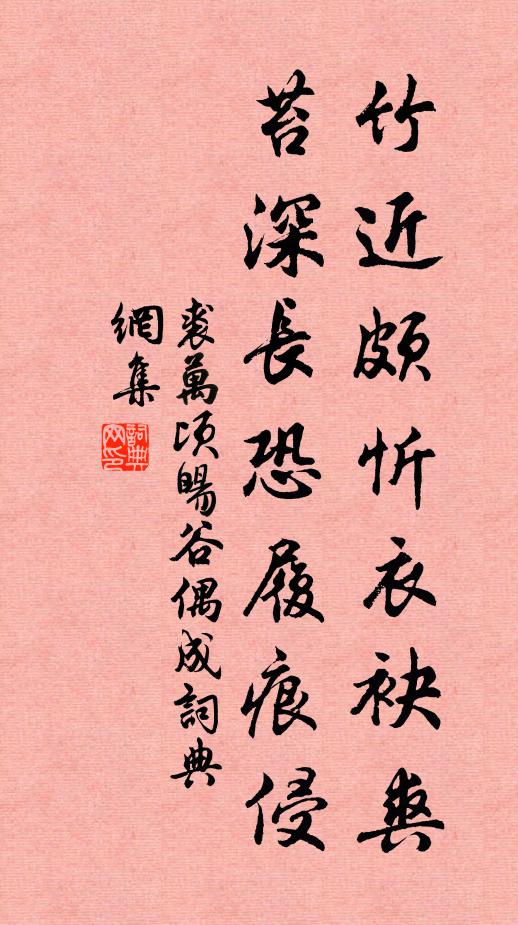 竹近頗忻衣袂爽
苔深長恐履痕侵
裘萬頃暘谷偶成詞典
網集
詞典
网印